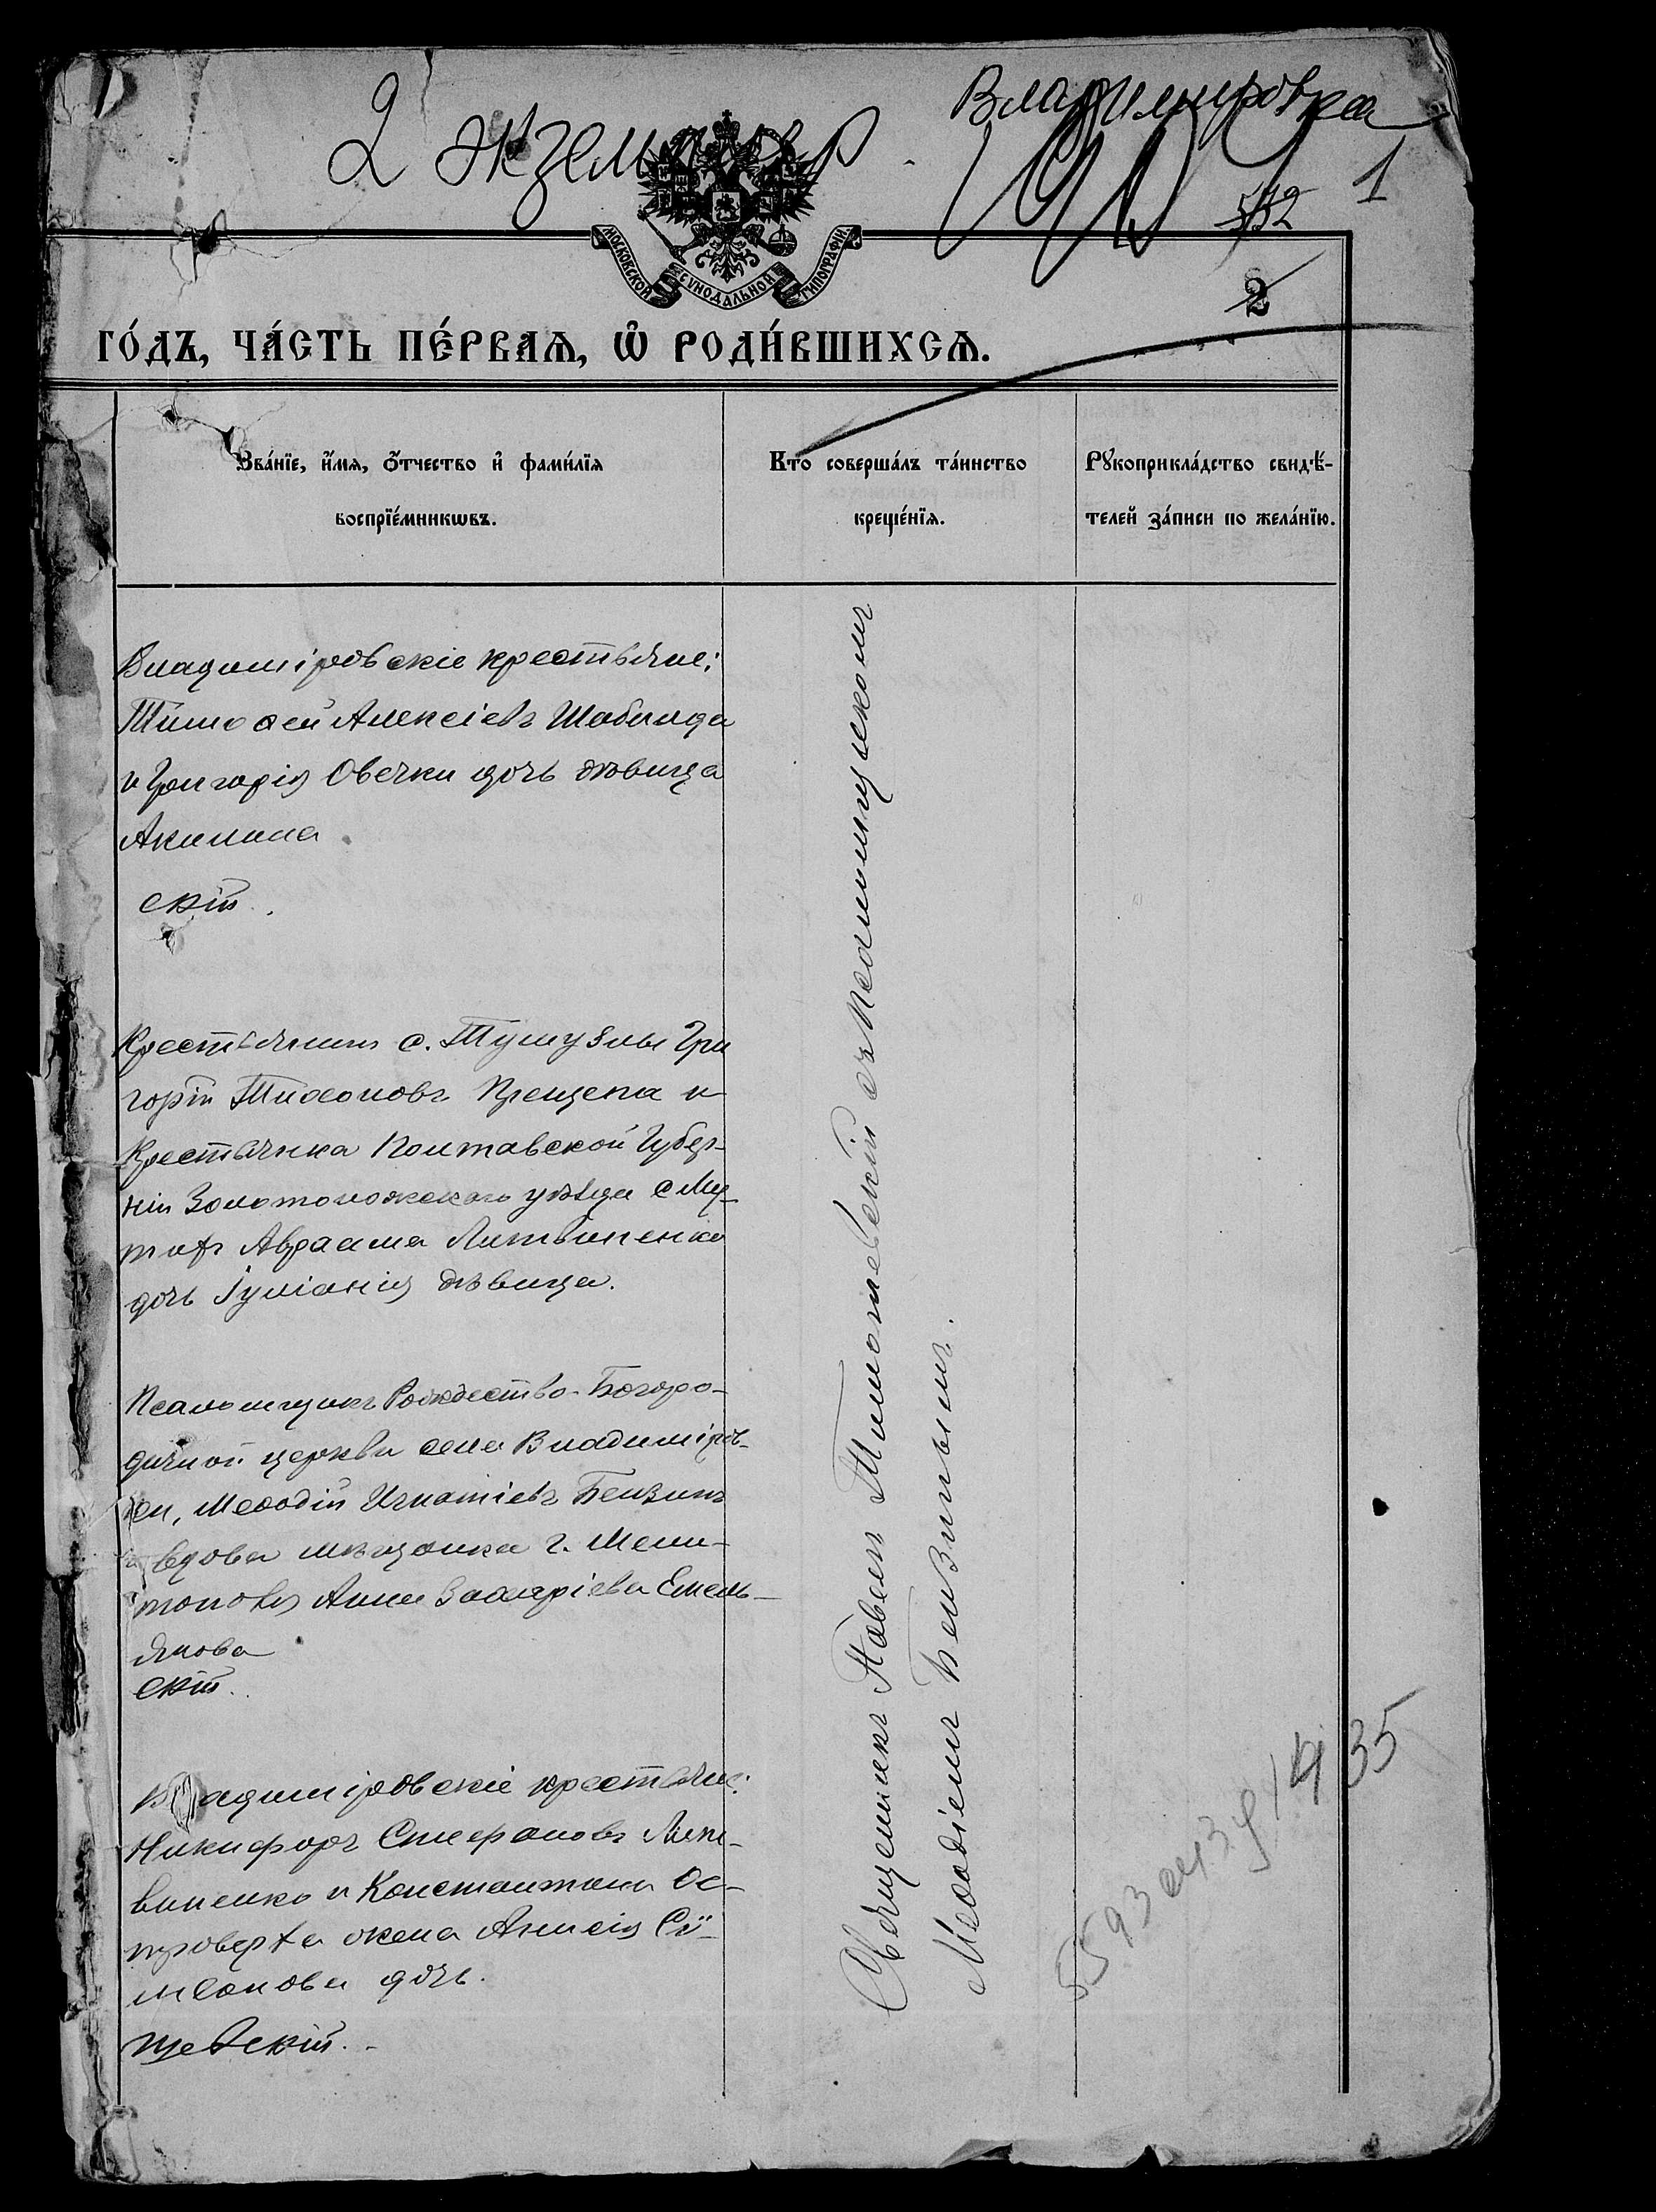 Владимировка
2 экземпляр.
1
532
2
МОСКОВСКОЙ СѴНОДАЛЬНОЙ ТИПОГРАФІИ
ГО́ДЪ, ЧА́СТЬ ПЕ́РВАѦ, Ѡ҆ РОДИ́ВШИХСѦ.
Зва́нїе, и҆́мѧ, ѻ҆́тчество и҆ фами́лїѧ
воспрїе́мникѡвъ.
Кто соверша́лъ та́инство
креще́нїѧ.
Рꙋкоприкла́дство свидѣ́-
телей за́писи по жела́нїю.
Владимі ровскіе крестьяне:
Тимоѳей Алексіевъ Шаблида
и Григорія Овечки дочь дѣвица
Акилина
скій.
Крестьянинъ с. Григорій
Тихоновъ Прещепа и
Крестьянка Полтавской Губер-
ніи Золотоношскаго уѣзда с.
Авраама Литвиненко
дочь Іуліанія дѣвица.
Псаломщикъ Рождество-Богоро-
дичной церкви села Владимі ров-
ки, Меѳодій Игнатіевъ Бензинъ
и вдова мѣщанка г. Мели-
тополя Анна Захаріева Емель-
янова
скій.
Владиміровскіе крестьяне:
Никифоръ Стефановъ Лит-
виненко и Константина Ос-
троверха жена Анисія Си-
меонова дочь.
шевскій.
Священникъ Павелъ Тимошевскій съ псаломщикомъ
Меѳодіемъ Бензинымъ.
35